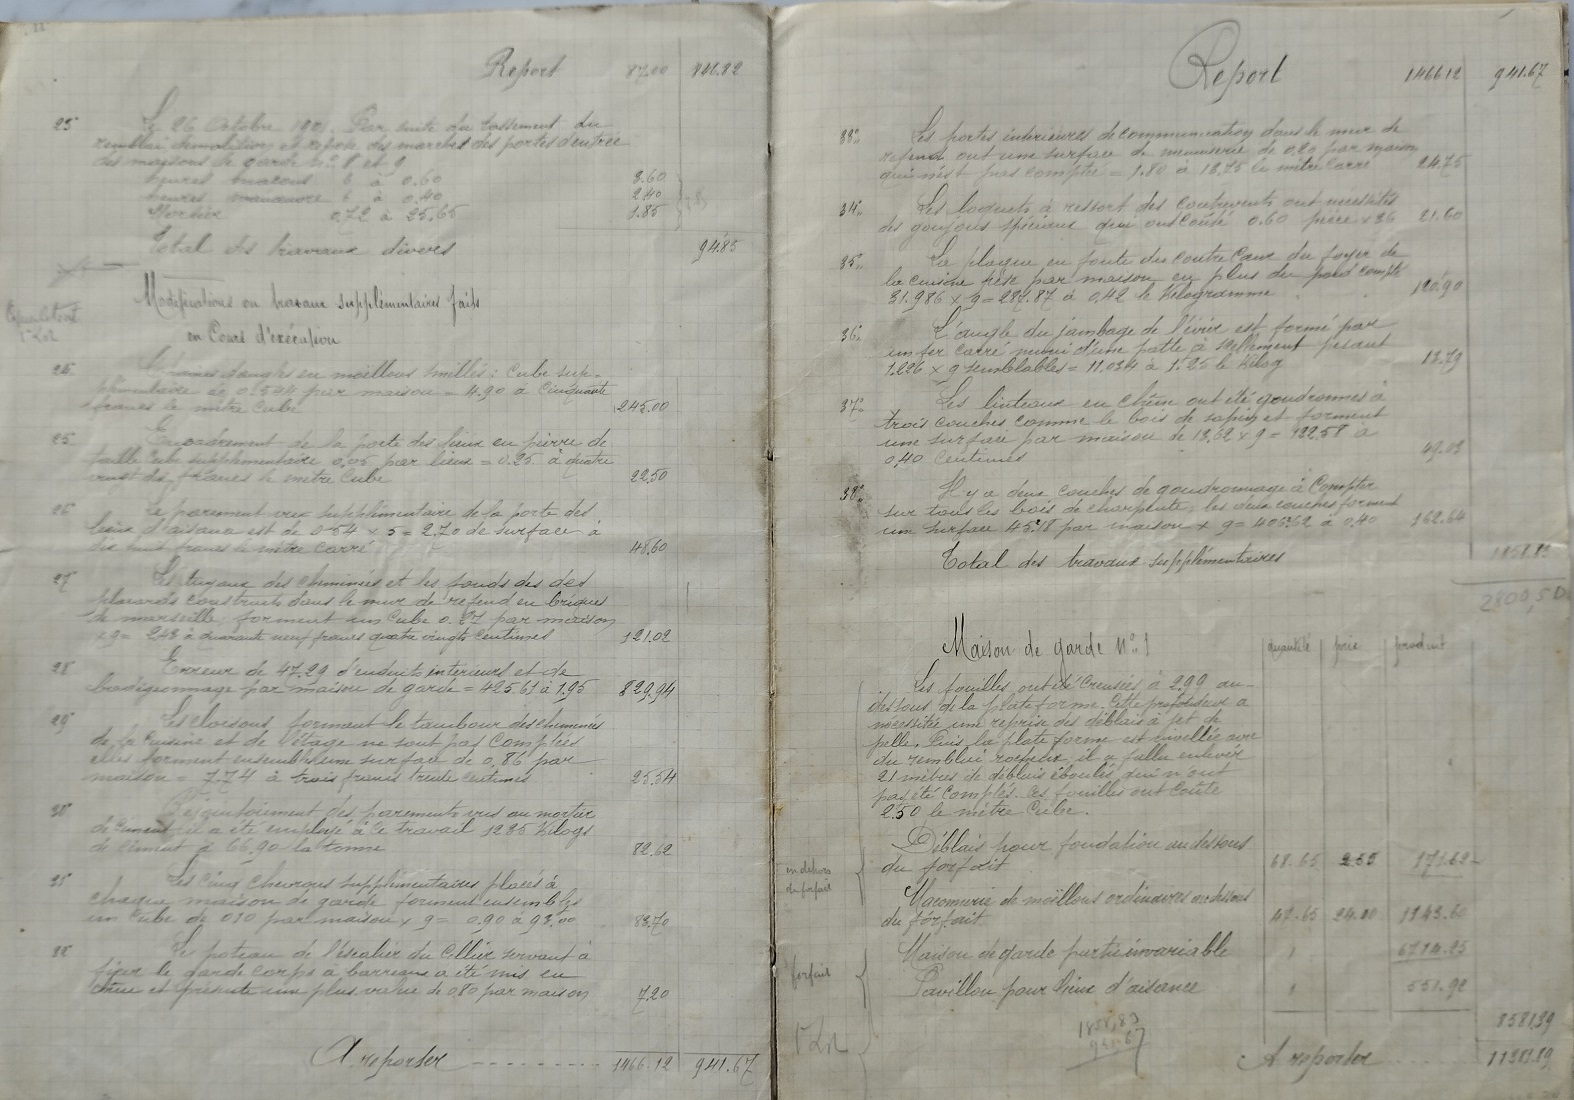 Report 87.00 846.82
25 Le 26 Octobre 190 . Par suite du tassement du
remblai démolition et repose des marches des portes d'entrée
des maisons de garde Nos 8 et 9
heures maçons 6 à 0.60 3.60
heures manœuvre 6 à 0.40 2.40
Mortier 0,72 à 25,65 1.85
Total des travaux divers 94.85
Modifications ou travaux supplémentaires faits
en Cours d'exécution
1er Lot
24 Chaînes d'angles en moellons smillés : Cube sup-
plémentaire de 0.544 par maison = 4.90 à Cinquante
francs le mètre Cube 245.00
25 Encadrement de la porte des lieux en pierre de
taille Cube supplémentaire 0,05 par lieux = 0.25 à quatre
vingt dix francs le mètre Cube 22.50
26 Le parement vu supplémentaire de la porte des
lieux d'aisance est de 0.54 x 5 = 2.70 de surface à
dix huit francs le mètre Carré 48.60
27 Les tuyaux des cheminées et les fonds des des
placards construits dans le mur de refend en briques
de marseille, forment un Cube 0.27 par maison
x 9 = 2.43 à quarante neuf francs quatre vingts centimes 121.02
28 Erreur de 47.29 d'enduits intérieurs et de
badigeonnage par maison de garde = 425.61 à 1.95 829.94
29 Les cloisons formant le tambour des cheminées
de la Cuisine et de l'étage ne sont pas Comptées
elles forment ensemble une surface de 0,86 par
maison = 7.74 à trois francs trente centimes 25.54
30 Rejointoiement des parements vus au mortier
de ciment il a été employé à ce travail 1235 Kilogs
de ciment à 66,90 la tonne 82.62
31 Les Cinq supplémentaires placés à
chaque maison de garde forment ensemble
un Cube de 0.10 par maison x 9 = 0.90 à 93.00 83.70
32 Le poteau de l'escalier du Cellier servant à
fixer le garde corps à barreaux a été mis en
chêne et présente une plus value de 0.80 par maison 7.20
A reporter 1466.12 941.67
Report 1466.12 941.67
33° Les portes intérieures de communication dans le mur de
refend ont une surface de menuiserie de 0,20 par maison
qui n'est pas comptée = 1.80 à 13.75 le mètre Carré 24.75
34° Les loquets à ressort des contrevents ont nécessités
des goujons spéciaux qui ont coûté 0.60 pièce x 36 21.60
35° La plaque en fonte du contre Cœur du foyer de
la cuisine pèse par maison en plus du poids compté
31.986 x 9 = 287.87 à 0,42 le Kilogramme 120.90
36° L'angle du jambage de l'évier est formé par
un fer carré muni d'une patte à scellement pesant
1.226 x 9 semblables = 11.034 à 1.25 le Kilog 13.79
37° Les linteaux en Chêne ont été goudronnés à
trois couches comme le bois de sapin et forment
une surface par maison de 13,62 x 9 = 122.58 à
0,40 Centimes 49.03
38° Il y a deux couches de goudronnage à Compter
sur tous les bois de charpente, les deux couches forment
une surface 45.18 par maison x 9 = 406.62 à 0,40 162.64
Total des travaux supplémentaires 1858.83
2800,50
Maison de garde N° 1 quantité prix produit
Les fouilles ont été Creusées à 2.99 au-
dessous de la plate forme. Cette profondeur a
nécessité une reprise des déblais à jet de
pelle. Puis la plate forme est nivellée avec
du remblai rocheux, il a fallu enlever
21 mètres de déblais éboulés, qui n'ont
pas été comptés. Ces fouilles ont coûté
2.50 le mètre Cube.
en dehors
du forfait
Déblais pour fondation au dessous
du forfait 68.65 2.55 171.62
Maçonnerie de moellons ordinaires au dessous
du forfait 24.00 1143.60
forfait
Maison de garde partie invariable 1 6714.25
Pavillon pour lieux d'aisance 1 551.92
8581.39
1er Lot
1858,83
941.67
A reporter 11381.89